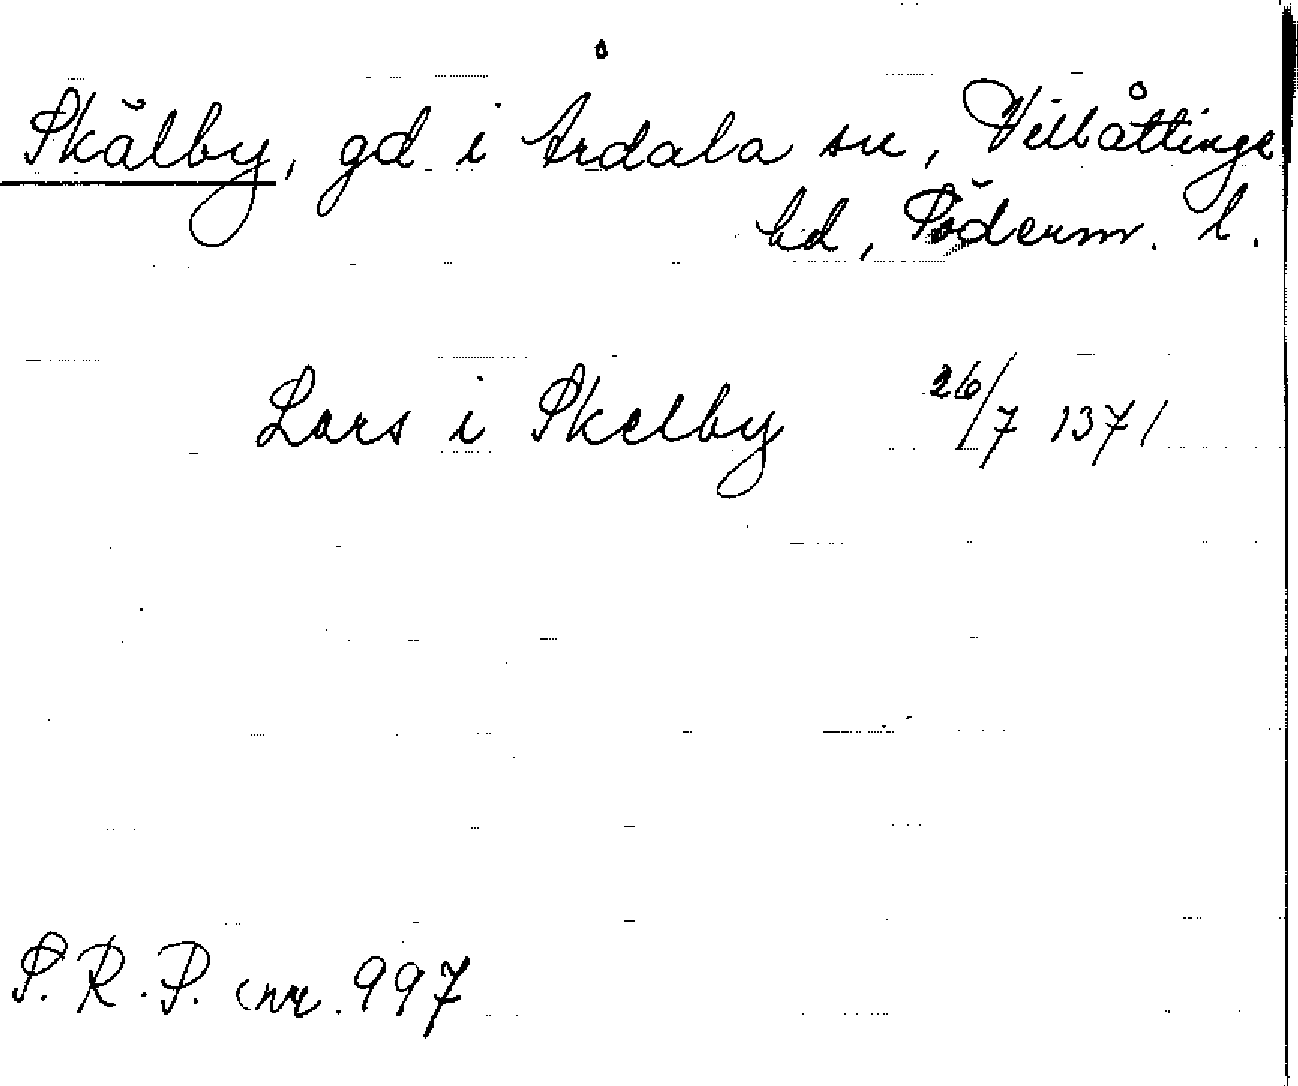 Skälby, gd i Årdala sn, Villåttinge
hd, Söderm. l.
Lars i Skelby 26/7 1371
S.R.P. nr. 997